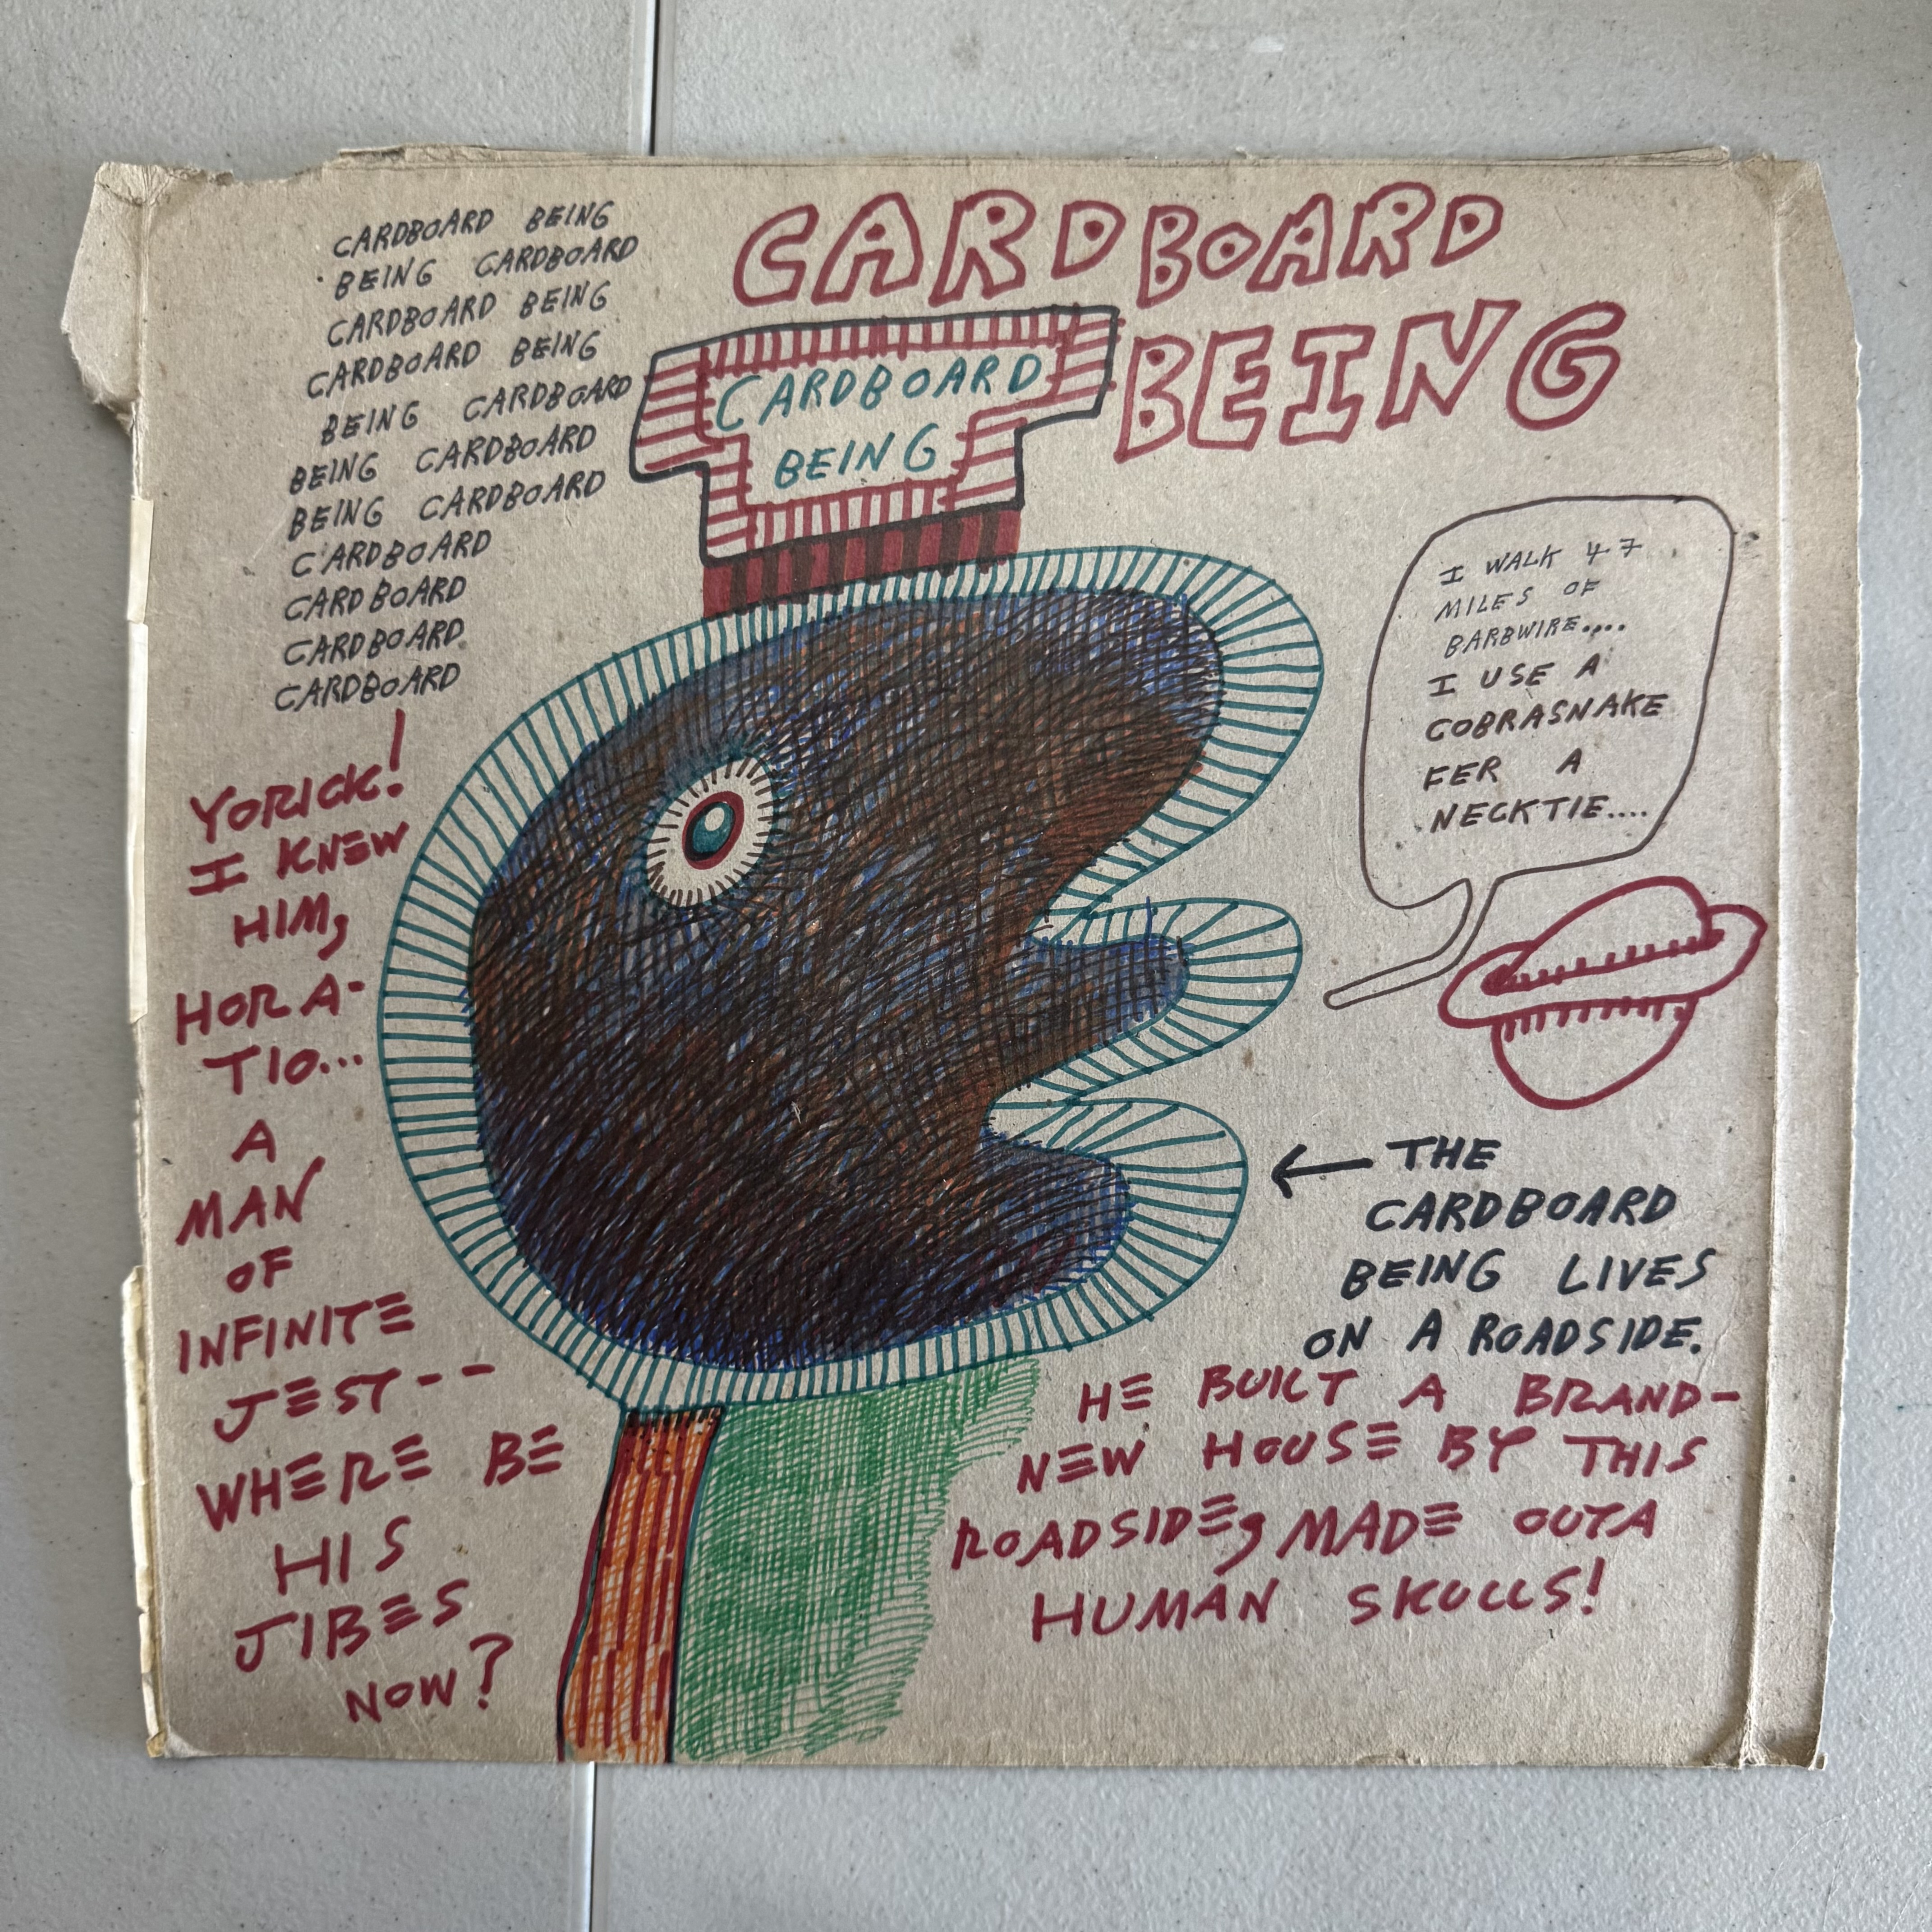 CARDBOARD BEING
BEING CARDBOARD
CARDBOARD BEING
CARDBOARD BEING
BEING CARDBOARD
BEING CARDBOARD
BEING CARDBOARD
CARDBOARD
CARDBOARD
CARDBOARD
CARDBOARD
CARDBOARD
BEING
CARDBOARD
BEING
I WALK 47
MILES OF
BARBWIRE....
I USE A
COBRASNAKE
FER A
NECKTIE....
YORICK!
I KNEW
HIM,
HORA-
TIO...
A
MAN
OF
INFINITE
JEST--
WHERE BE
HIS
JIBES
NOW?
← THE
CARDBOARD
BEING LIVES
ON A ROADSIDE.
HE BUILT A BRAND-
NEW HOUSE BY THIS
ROADSIDE, MADE OUTA
HUMAN SKULLS!